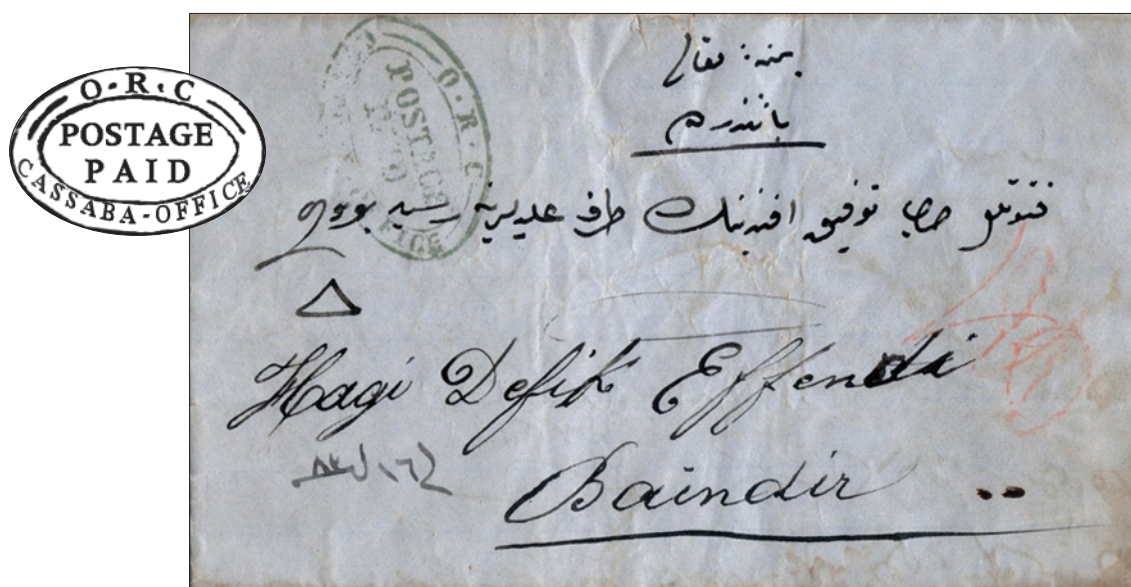 O·R·C
POSTAGE
PAID
CASSABA-OFFICE
O·R·C
POSTAGE
بمنه تعالى
باينדره
فتوتلو توفيق افندينك طرف
Hagi Defik Effendi
Baindir